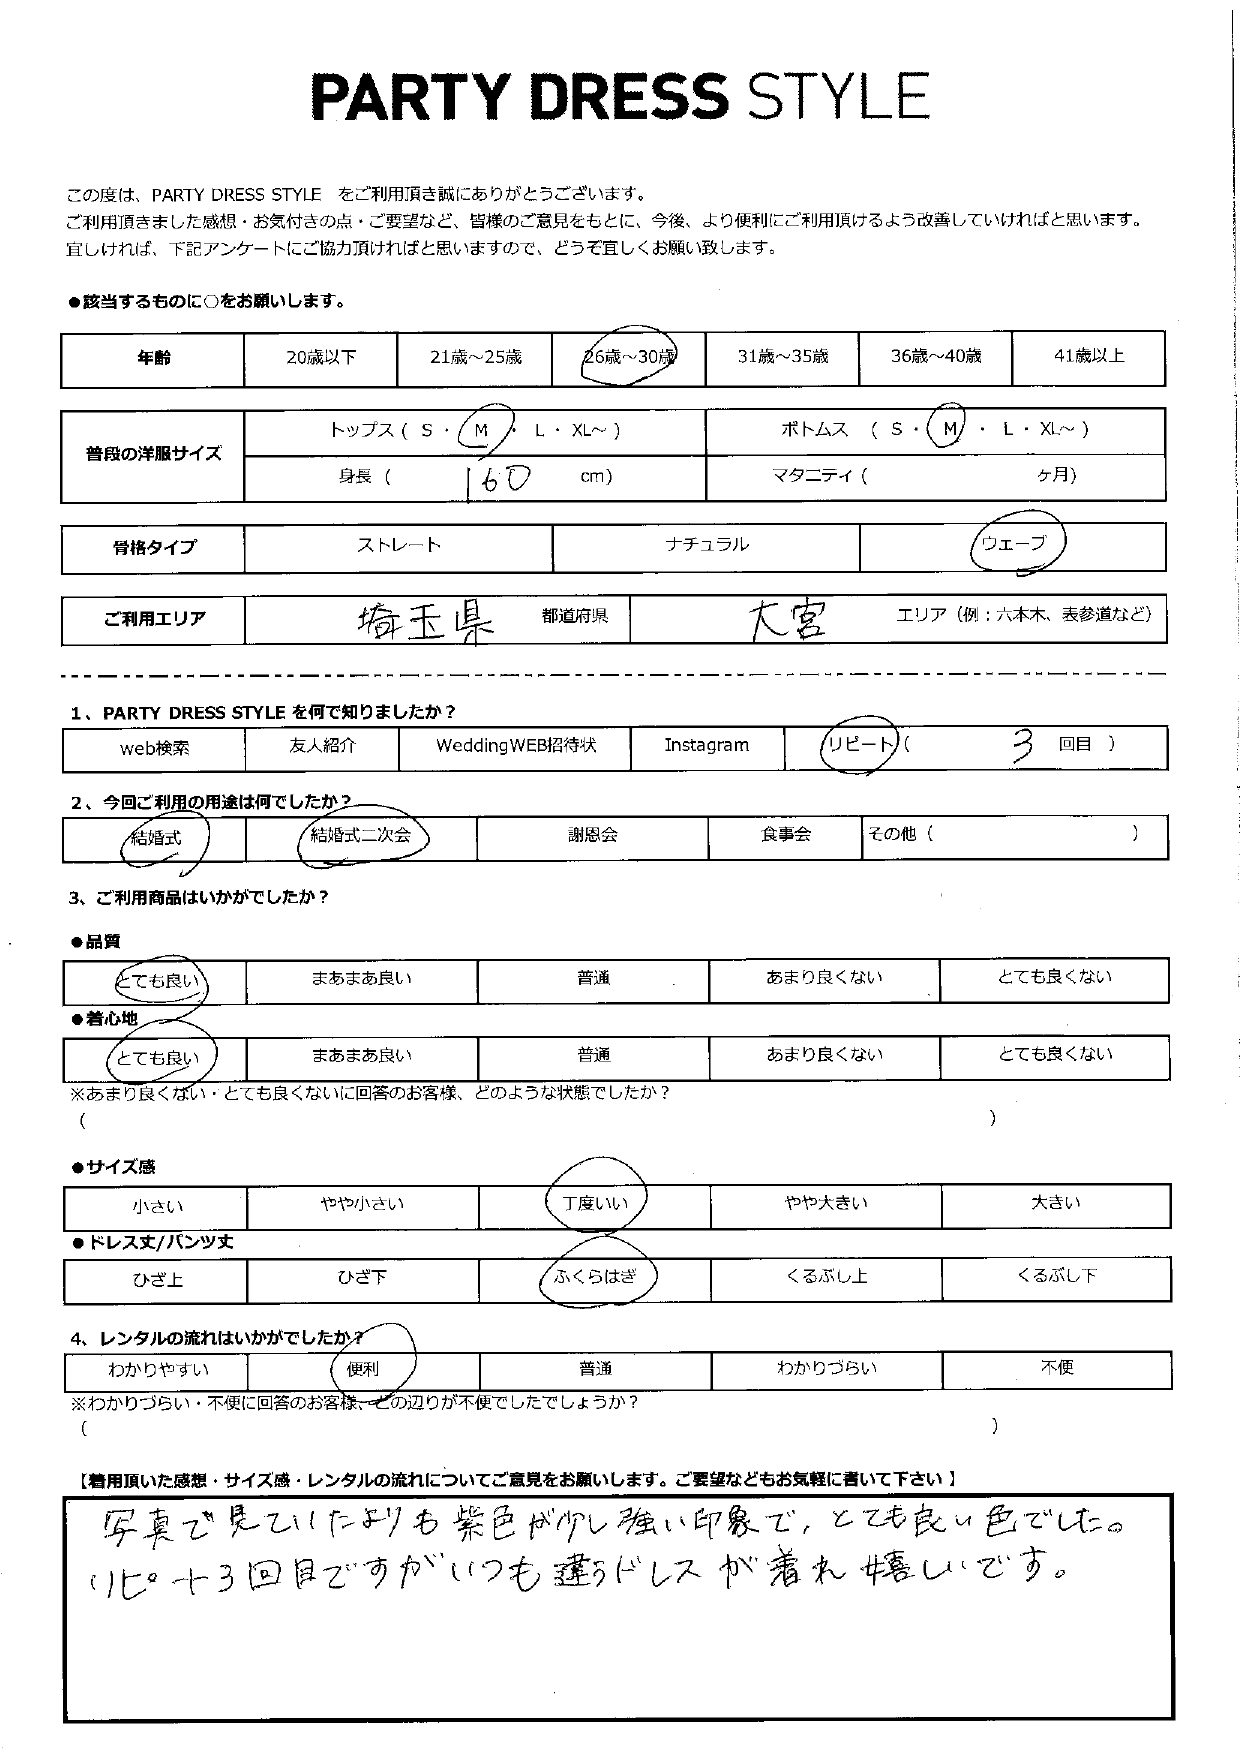 PARTY DRESS STYLE
この度は、PARTY DRESS STYLE をご利用頂き誠にありがとうございます。
ご利用頂きました感想・お気付きの点・ご要望など、皆様のご意見をもとに、今後、より便利にご利用頂けるよう改善していければと思います。
宜しければ、下記アンケートにご協力頂ければと思いますので、どうぞ宜しくお願い致します。
●該当するものに○をお願いします。
年齢 20歳以下 21歳～25歳 26歳～30歳 31歳～35歳 36歳～40歳 41歳以上
普段の洋服サイズ トップス ( S ・ M ・ L ・ XL～ ) ボトムス ( S ・ M ・ L ・ XL～ )
身長 ( 160 cm) マタニティ ( ヶ月)
骨格タイプ ストレート ナチュラル ウェーブ
ご利用エリア 埼玉県 都道府県 大宮 エリア (例：六本木、表参道など)
1、PARTY DRESS STYLE を何で知りましたか？
web検索 友人紹介 WeddingWEB招待状 Instagram リピート ( 3 回目 )
2、今回ご利用の用途は何でしたか？
結婚式 結婚式二次会 謝恩会 食事会 その他 ( )
3、ご利用商品はいかがでしたか？
●品質
とても良い まあまあ良い 普通 あまり良くない とても良くない
●着心地
とても良い まあまあ良い 普通 あまり良くない とても良くない
※あまり良くない・とても良くないに回答のお客様、どのような状態でしたか？
( )
●サイズ感
小さい やや小さい 丁度いい やや大きい 大きい
●ドレス丈/パンツ丈
ひざ上 ひざ下 ふくらはぎ くるぶし上 くるぶし下
4、レンタルの流れはいかがでしたか？
わかりやすい 便利 普通 わかりづらい 不便
※わかりづらい・不便に回答のお客様、どの辺りが不便でしたでしょうか？
( )
【着用頂いた感想・サイズ感・レンタルの流れについてご意見をお願いします。ご要望などもお気軽に書いて下さい 】
写真で見ていたよりも紫色が少し強い印象で、とても良い色でした。
リピート3回目ですがいつも違うドレスが着れ嬉しいです。